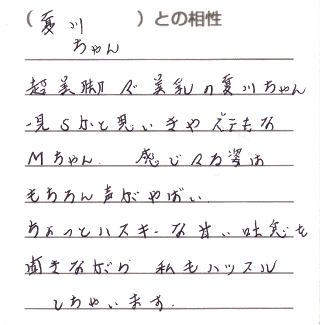 (夏川
ちゃん )との相性
超美脚で美乳の夏川ちゃん
一見Sかと思いきやとてもな
Mちゃん. 感じる姿は
もちろん声がやばい.
ちょっとハスキーな甘い吐息を
聞きながら 私もハッスル
しちゃいます.